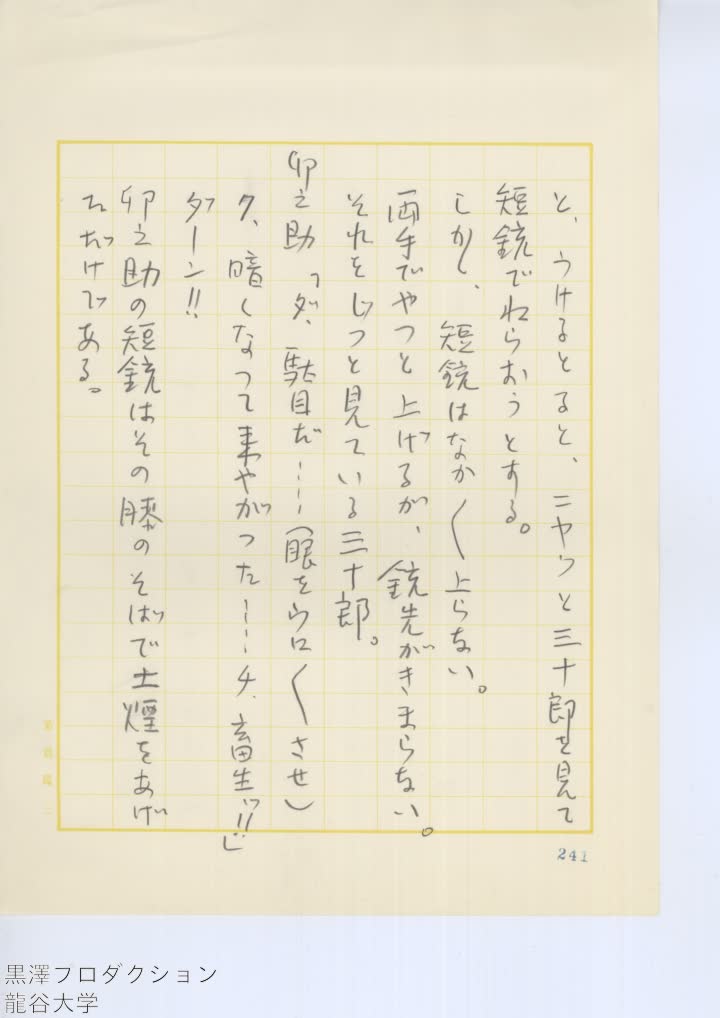 と、うけるとると、ニヤッと三十郎を見て
短銃でねらおうとする。
しかし、短銃はなか〱上らない。
両手でやつと上げるが、銃先がきまらない。
それをじっと見ている三十郎。
卯之助「ダ、駄目だ……(眼をウロ〱させ)
ク、暗くなって来やがった……チ、畜生ッ!!」
ダーン!!
卯之助の短銃はその膝のそばで土煙をあげ
ただけである。
241
黒澤プロダクション
龍谷大学